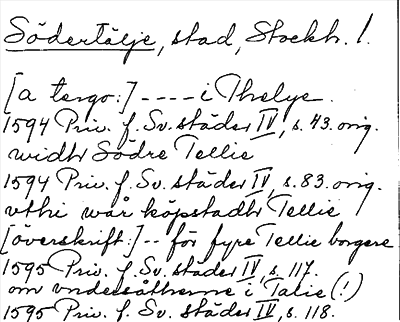 Södertälje, stad, Stockh. l.
[a tergo:] ---- i Thelye.
1594 Priv. f. Sv. städer IV, s. 43. orig.
widh Södre Tellie
1594 Priv. f. Sv. städer IV, s. 83. orig.
vthi wår köpstadh Tellie
[överskrift:] -- för fyre Tellie borgere
1595 Priv. f. Sv. städer IV, s. 117.
om vndersåtherne i Talie (!)
1595 Priv. f. Sv. städer IV, s. 118.